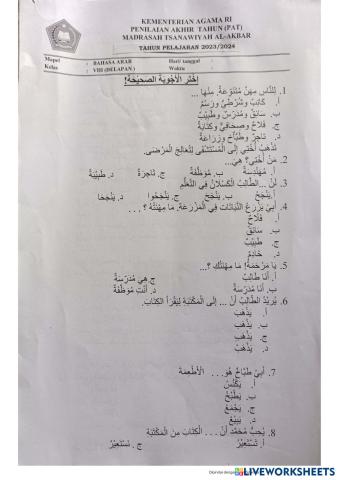 KEMENTERIAN AGAMA RI
PENILAIAN AKHIR TAHUN (PAT)
MADRASAH TSANAWIYAH AL-AKBAR
TAHUN PELAJARAN 2023/2024
Mapel : BAHASA ARAB Hari/ tanggal :
Kelas : VIII (DELAPAN) Waktu :
إِخْتَرِ الْأَجْوِبَةَ الصَّحِيْحَةَ!
1. لِلنَّاسِ مِهَنٌ مُتَنَوِّعَةٌ. مِنْهَا ...
أ. كَاتِبٌ وَشُرْطِيٌّ وَرَسْمٌ
ب. سَائِقٌ وَمُدَرِّسٌ وَطَبِيْبٌ
ج. فَلَّاحٌ وَصِحَافِيٌّ وَكِتَابَةٌ
د. تَاجِرٌ وَطَبَّاخٌ وَزِرَاعَةٌ
تَذْهَبُ أُخْتِي إِلَى الْمُسْتَشْفَى لِتُعَالِجَ الْمَرْضَى.
2. مَنْ أُخْتِي؟ هِيَ...
أ. مُهَنْدِسَةٌ ب. مُوَظَّفَةٌ ج. تَاجِرَةٌ د. طَبِيْبَةٌ
3. لَنْ ... الطَّالِبُ الْكَسْلَانُ فِي التَّعَلُّمِ
أ. يَنْجَحَ ب. يَنْجَحُ ج. يَنْجَحُوا د. يَنْجَحَا
4. أَبِيْ يَزْرَعُ النَّبَاتَاتِ فِي الْمَزْرَعَةِ. مَا مِهْنَتُهُ ؟ ...
أ. فَلَّاحٌ
ب. سَائِقٌ
ج. طَبِيْبٌ
د. خَادِمٌ
5. يَا مَرْحَمَةُ! مَا مِهْنَتُكِ ؟...
أ. أَنَا طَالِبٌ ج. هِيَ مُدَرِّسَةٌ
ب. أَنَا مُدَرِّسَةٌ د. أَنْتِ مُوَظَّفَةٌ
6. يُرِيْدُ الطَّالِبُ أَنْ ... إِلَى الْمَكْتَبَةِ لِيَقْرَأَ الْكِتَابَ.
أ. يَذْهَبَ
ب. يَذْهَبُ
ج. يَذْهَبِ
د. يَذْهَبْ
7. أَبِيْ طَبَّاخٌ هُوَ... الْأَطْعِمَةَ
أ. يَكْنُسُ
ب. يَطْبُخُ
ج. يَجْمَعُ
د. يَبِيْعُ
8. يُحِبُّ مُحَمَّدٌ أَنْ ... الْكِتَابَ مِنَ الْمَكْتَبَةِ
أ. تَسْتَعِيْرُ ج. نَسْتَعِيْرُ
LIVEWORKSHEETS